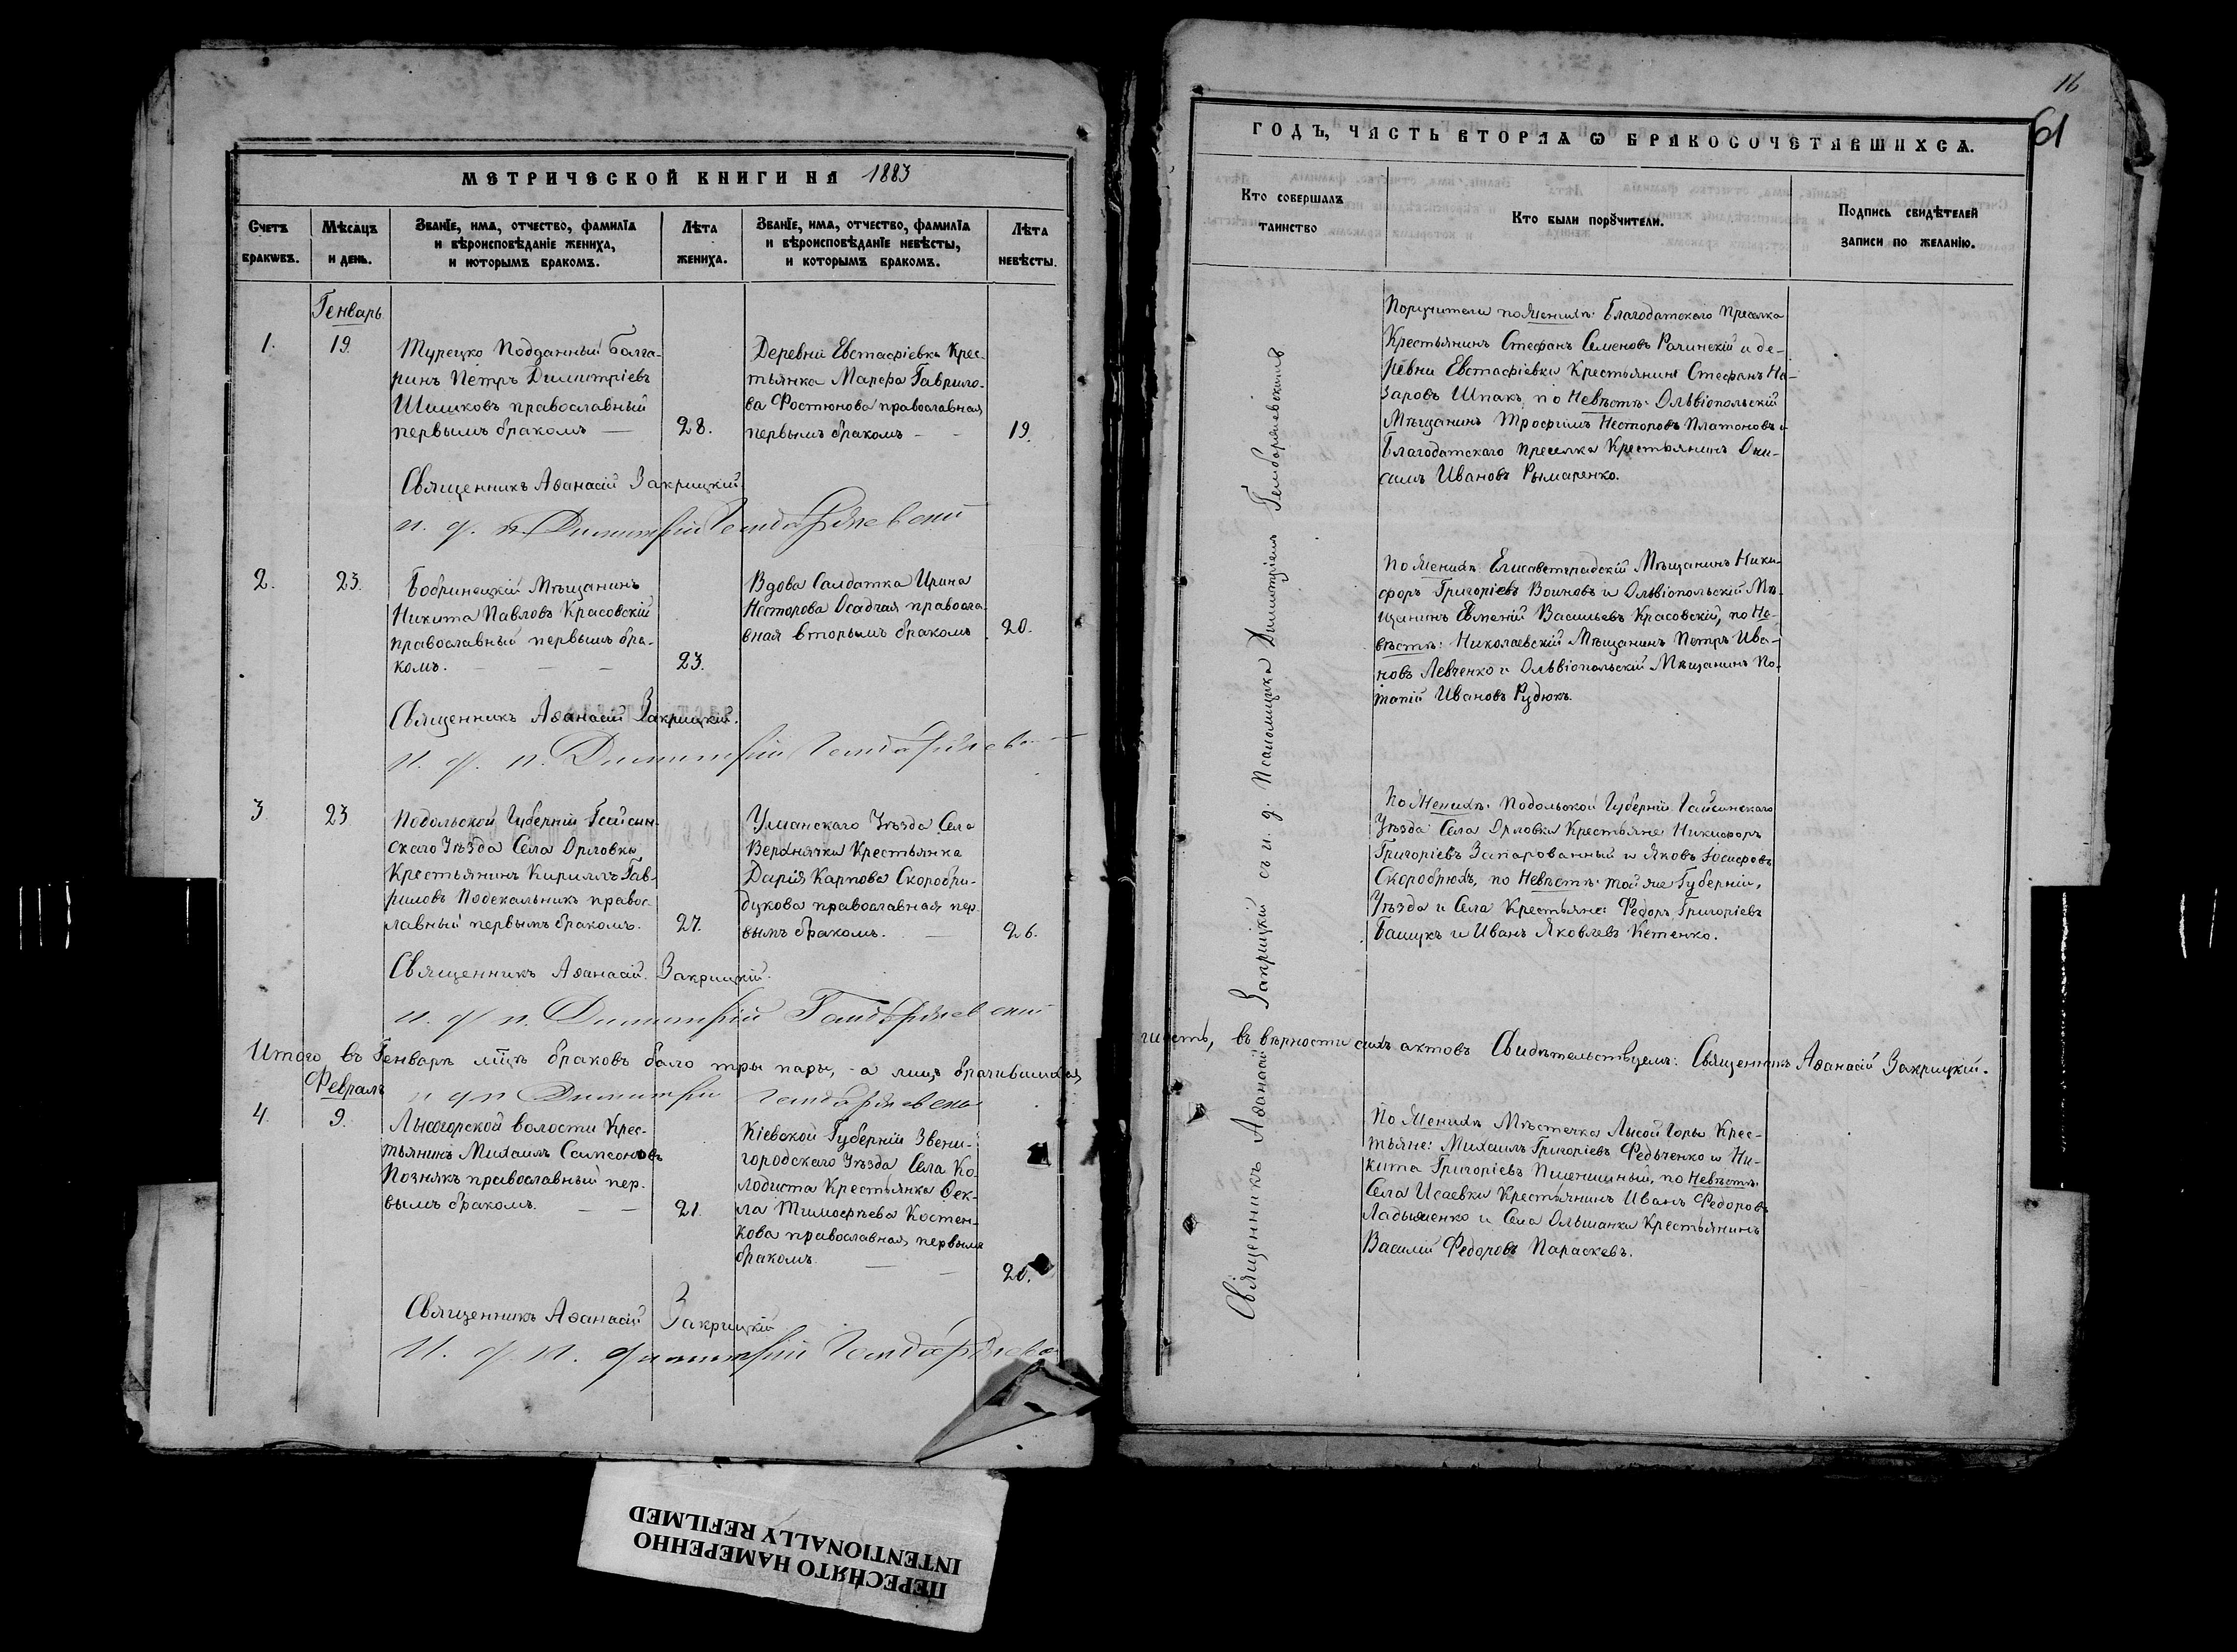 МЕТРИЧЕСКОЙ КНИГИ НА 1883
Счетъ браковъ.
Мѣсяцъ и день.
Званіе, имя, отчество, фамилія
и вѣроисповѣданіе жениха,
и которымъ бракомъ.
Лѣта
жениха.
Званіе, имя, отчество, фамилія
и вѣроисповѣданіе невѣсты,
и которымъ бракомъ.
Лѣта
невѣсты.
Генварь
1.
19.
Турецко Подданный Болга-
ринъ Петръ Димитріевъ
Шишковъ православный
первымъ бракомъ —
28.
Деревни Евстафіевки Крес-
тьянка Марфа Гаврило-
ва Фостюнова православная
первымъ бракомъ - -
19.
Священникъ Аѳанасій Закрицкій.
и. д. п. Димитрій
2.
23.
Бобринецкій Мѣщанинъ
Никита Павловъ Красовскій
православный первымъ бра-
комъ. — — —
23.
Вдова Солдатка Ирина
Несторова Осадчая правосла-
вная вторымъ бракомъ
20.
Священникъ Аѳанасій Закрицкій.
и. д. п. Димитрій
3
23
Подольской Губерніи Гайсин-
скаго Уѣзда Села Орловки
Крестьянинъ Кириллъ Гав-
риловъ Подекальникъ правос-
лавный первымъ бракомъ.
27.
Уманскаго Уѣзда Села
Верхнячки Крестьянка
Дарія Карпова Скоробри-
дукова православная пер-
вымъ бракомъ. —
26.
Священникъ Аѳанасій Закрицкій.
и. д. п. Димитрій
Итого въ Генварѣ мцѣ браковъ было три пары, - а лицъ брачившихся
Февраль
и д п Димитрій
4.
9.
Лысогорской волости Крес-
тьянинъ Михаилъ Самсоновъ
Познякъ православный пер-
вымъ бракомъ. — —
21.
Кіевской Губерніи Звени-
городскаго Уѣзда Села Ко-
лодиста Крестьянка Ѳек-
ла Тимофѣева Костен-
кова православная, первымъ
бракомъ — —
20.
Священникъ Аѳанасій Закрицкій
И. д. п. Димитрій
16
61
ГОДЪ, ЧАСТЬ ВТОРАЯ Ѡ БРАКОСОЧЕТАВШИХСЯ.
Кто совершалъ
таинство
Кто были поручители.
Подпись свидѣтелей
записи по желанію.
Священникъ Аѳанасій Закрицкій съ и. д. Псаломщика Димитріемъ
Поручители по Женихѣ: Благодатскаго Приселка
Крестьянинъ Стефанъ Семеновъ Рачинскій и де-
ревни Евстафіевки Крестьянинъ Стефанъ На-
заровъ Шпакъ; по Невѣстѣ: Ольвіопольскій
Мѣщанинъ Трофимъ Несторовъ Платоновъ и
Благодатскаго Приселка Крестьянинъ Они-
симъ Ивановъ Рымаренко.
По Женихѣ: Елисаветградскій Мѣщанинъ Ники-
форъ Григоріевъ Воиновъ и Ольвіопольскій Мѣ-
щанинъ Евменій Васильевъ Красовскій, по Не-
вѣстѣ: Николаевскій Мѣщанинъ Петръ Ива-
новъ Левченко и Ольвіопольскій Мѣщанинъ По-
тапій Ивановъ Рудюкъ.
По Женихѣ: Подольской Губерніи Гайсинскаго
Уѣзда Села Орловки Крестьяне Никифоръ
Григоріевъ Запарованный и Яковъ Іосифовъ
Скоробрюхъ, по Невѣстѣ: той же Губерніи,
Уѣзда и Села Крестьяне: Федоръ Григоріевъ
Башукъ и Иванъ Яковлевъ Кетенко.
шесть, въ вѣрности сихъ актовъ Свидѣтельствуемъ: Священникъ Аѳанасій Закрицкій.
По Женихѣ Мѣстечка Лысой Горы Крес-
тьяне: Михаилъ Григоріевъ Федченко и Ни-
кита Григоріевъ Пшеничный, по Невѣстѣ:
Села Исаевки Крестьянинъ Иванъ Федоровъ
Ладыженко и Села Ольшанки Крестьянинъ
Василій Федоровъ Параскевъ.
ПЕРЕСНЯТО НАМЕРЕННО
INTENTIONALLY REFILMED